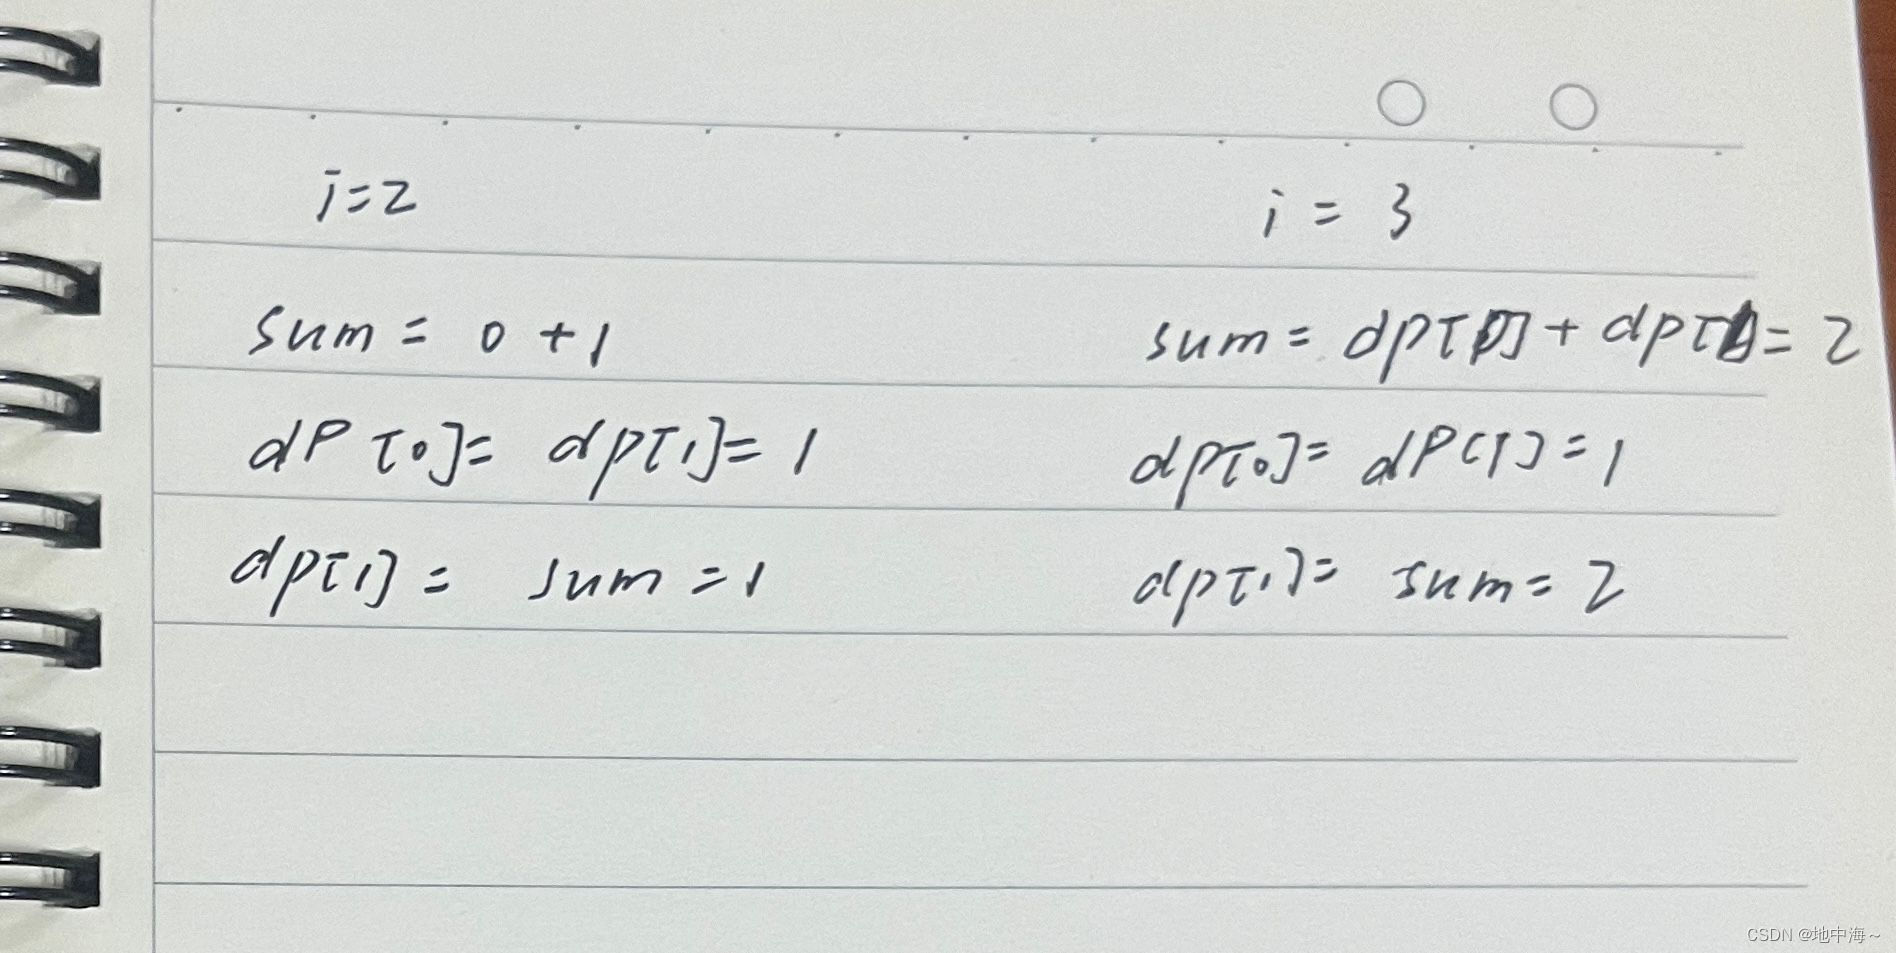 i=2
sum = 0 + 1
dP [0] = dp[1] = 1
dp[1] = sum = 1
i = 3
sum = dp[0] + dp[1] = 2
dp[0] = dP[1] = 1
dp[1] = sum = 2
CSDN @地中海~